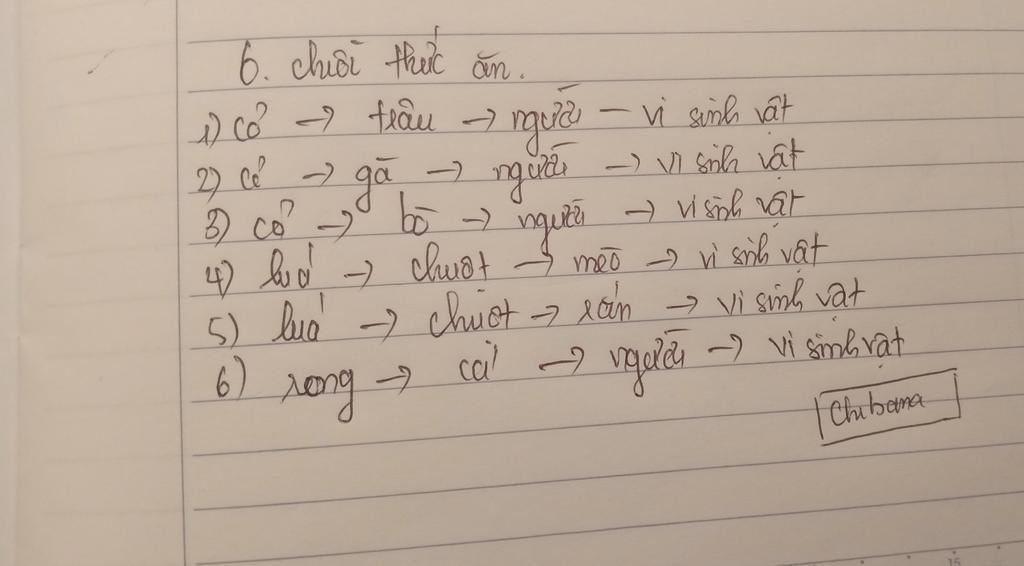 6. chuỗi thức ăn.
1) cỏ → trâu → người – vi sinh vật
2) cỏ → gà → người → vi sinh vật
3) cỏ → bò → người → vi sinh vật
4) lúa → chuột → mèo → vi sinh vật
5) lúa → chuột → rắn → vi sinh vật
6) rong → cá → người → vi sinh vật
Chibama